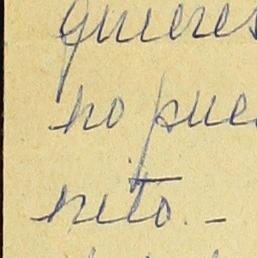 quieres
no pue
nito. -